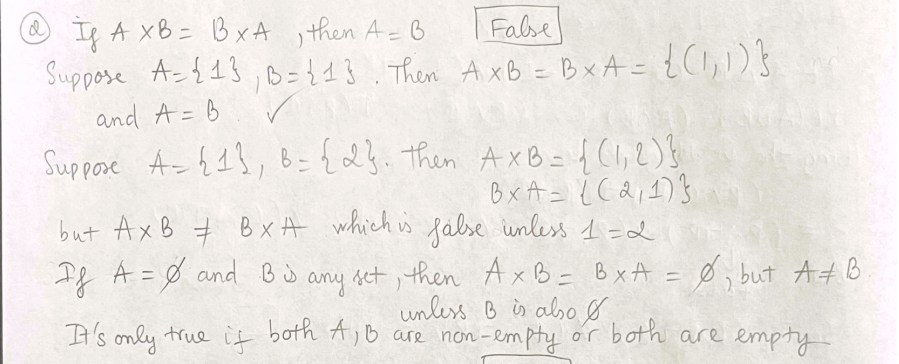 (a) If A × B = B × A , then A = B False
Suppose A = {1} , B = {1} . Then A × B = B × A = {(1,1)}
and A = B ✓
Suppose A = {1} , B = {2}. Then A × B = {(1,2)}
B × A = {(2,1)}
but A × B ≠ B × A which is false unless 1 = 2
If A = ∅ and B is any set , then A × B = B × A = ∅ , but A ≠ B
unless B is also ∅
It's only true if both A, B are non-empty or both are empty